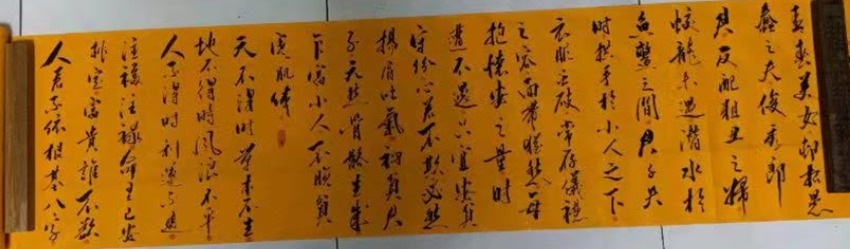 青春美女却招愚
蠢之夫俊秀郎
君反配粗丑之婦
蛟龍未遇潜水於
魚鱉之間君子失
时拱手於小人之下
衣服虽破常存儀禮
之容面带憂愁每
抱懷安之量时
遭不遇只宜安貧
守份心若不欺必然
揚眉吐氣初貧君
子天然骨骼生成
乍富小人不脱貧
寒肌体
天不得时草木不生
地不得時風浪不平
人不得时利運不通
注福注禄命里已安
排定富貴誰不欲
人若不依根基八字